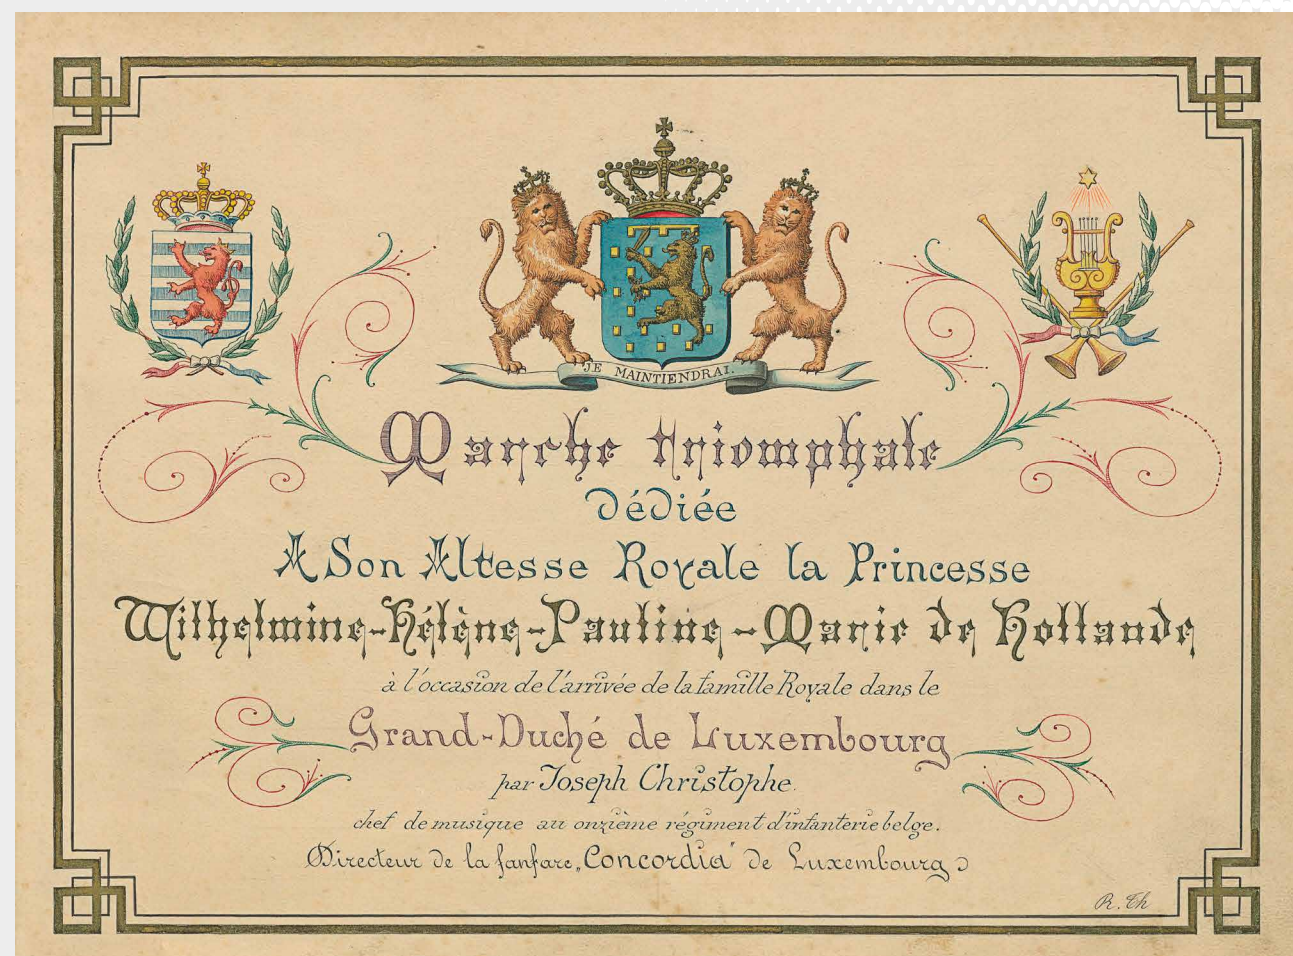 JE MAINTIENDRAI.
Marche triomphale
dédiée
A Son Altesse Royale la Princesse
Wilhelmine-Hélène-Pauline-Marie de Hollande
à l'occasion de l'arrivée de la famille Royale dans le
Grand-Duché de Luxembourg
par Joseph Christophe.
chef de musique au onzième régiment d'infanterie belge.
Directeur de la fanfare „Concordia" de Luxembourg
R. Th